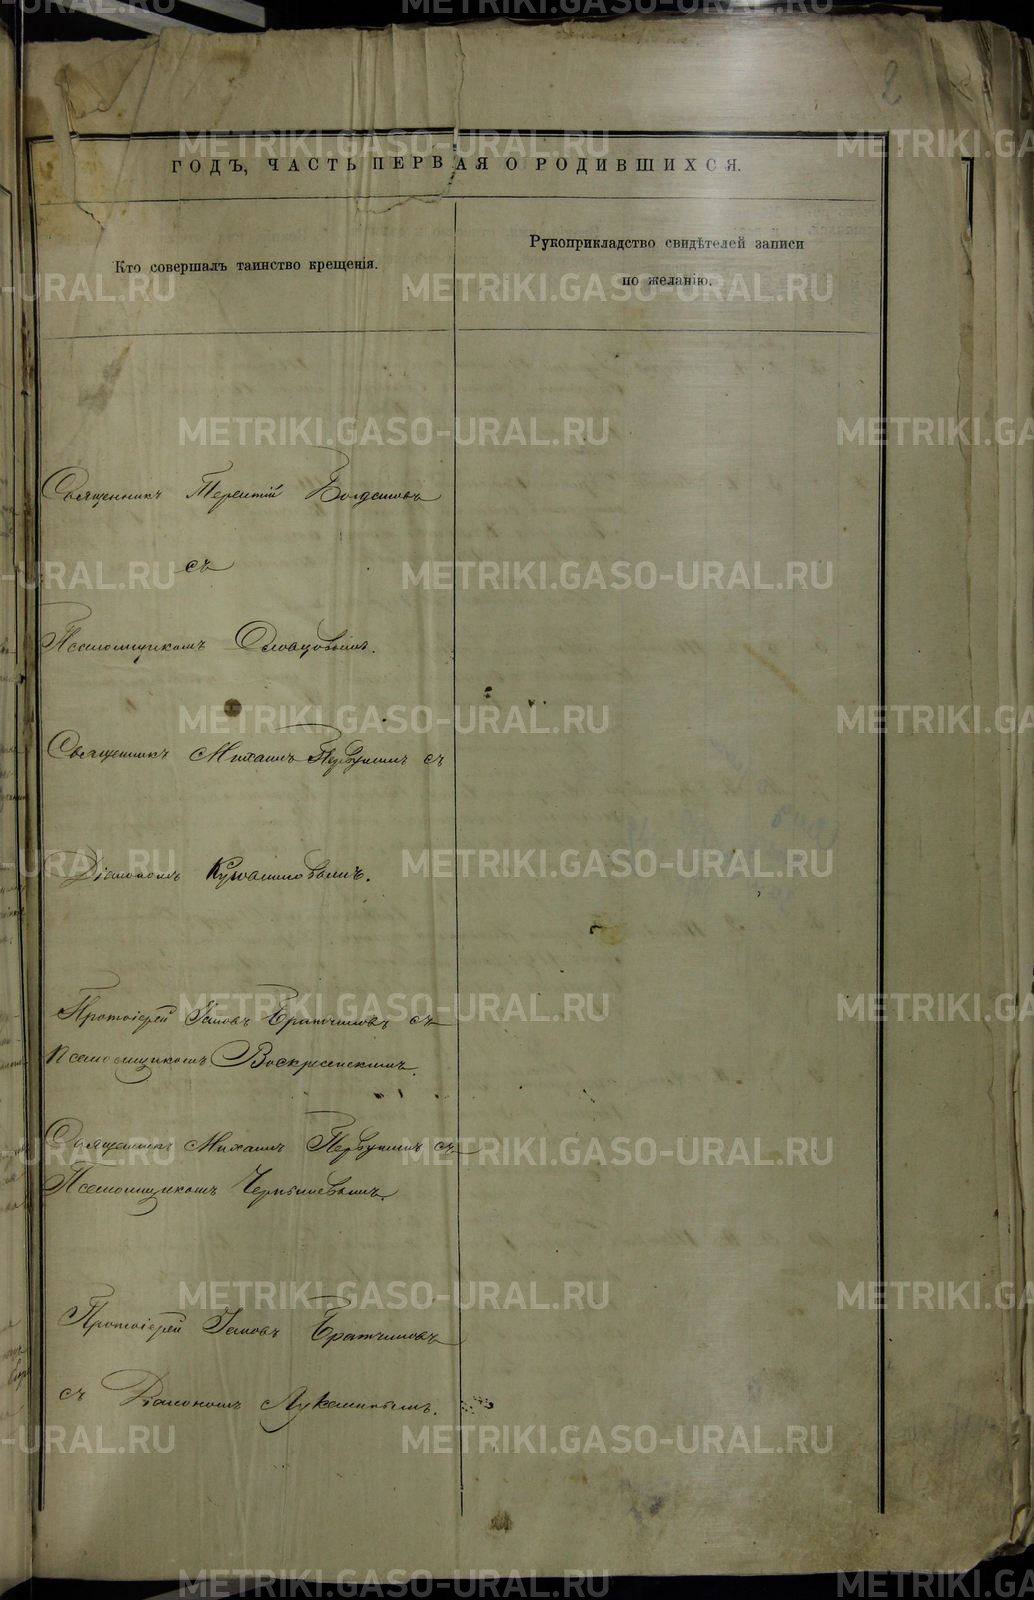 2
ГОДЪ, ЧАСТЬ ПЕРВАЯ О РОДИВШИХСЯ.
Кто совершалъ таинство крещенія.
Рукоприкладство свидѣтелей записи
по желанію.
Священникъ Терентій Богдановъ
съ
Псаломщикомъ
Священникъ Михаилъ Первушинъ съ
Діакономъ
Протоіерей Іаковъ Братчиковъ съ
Псаломщикомъ Воскресенскимъ.
Священникъ Михаилъ Первушинъ съ
Псаломщикомъ Чернышевымъ.
Протоіерей Іаковъ Братчиковъ
съ Діакономъ Лукашинымъ.
METRIKI.GASO-URAL.RU